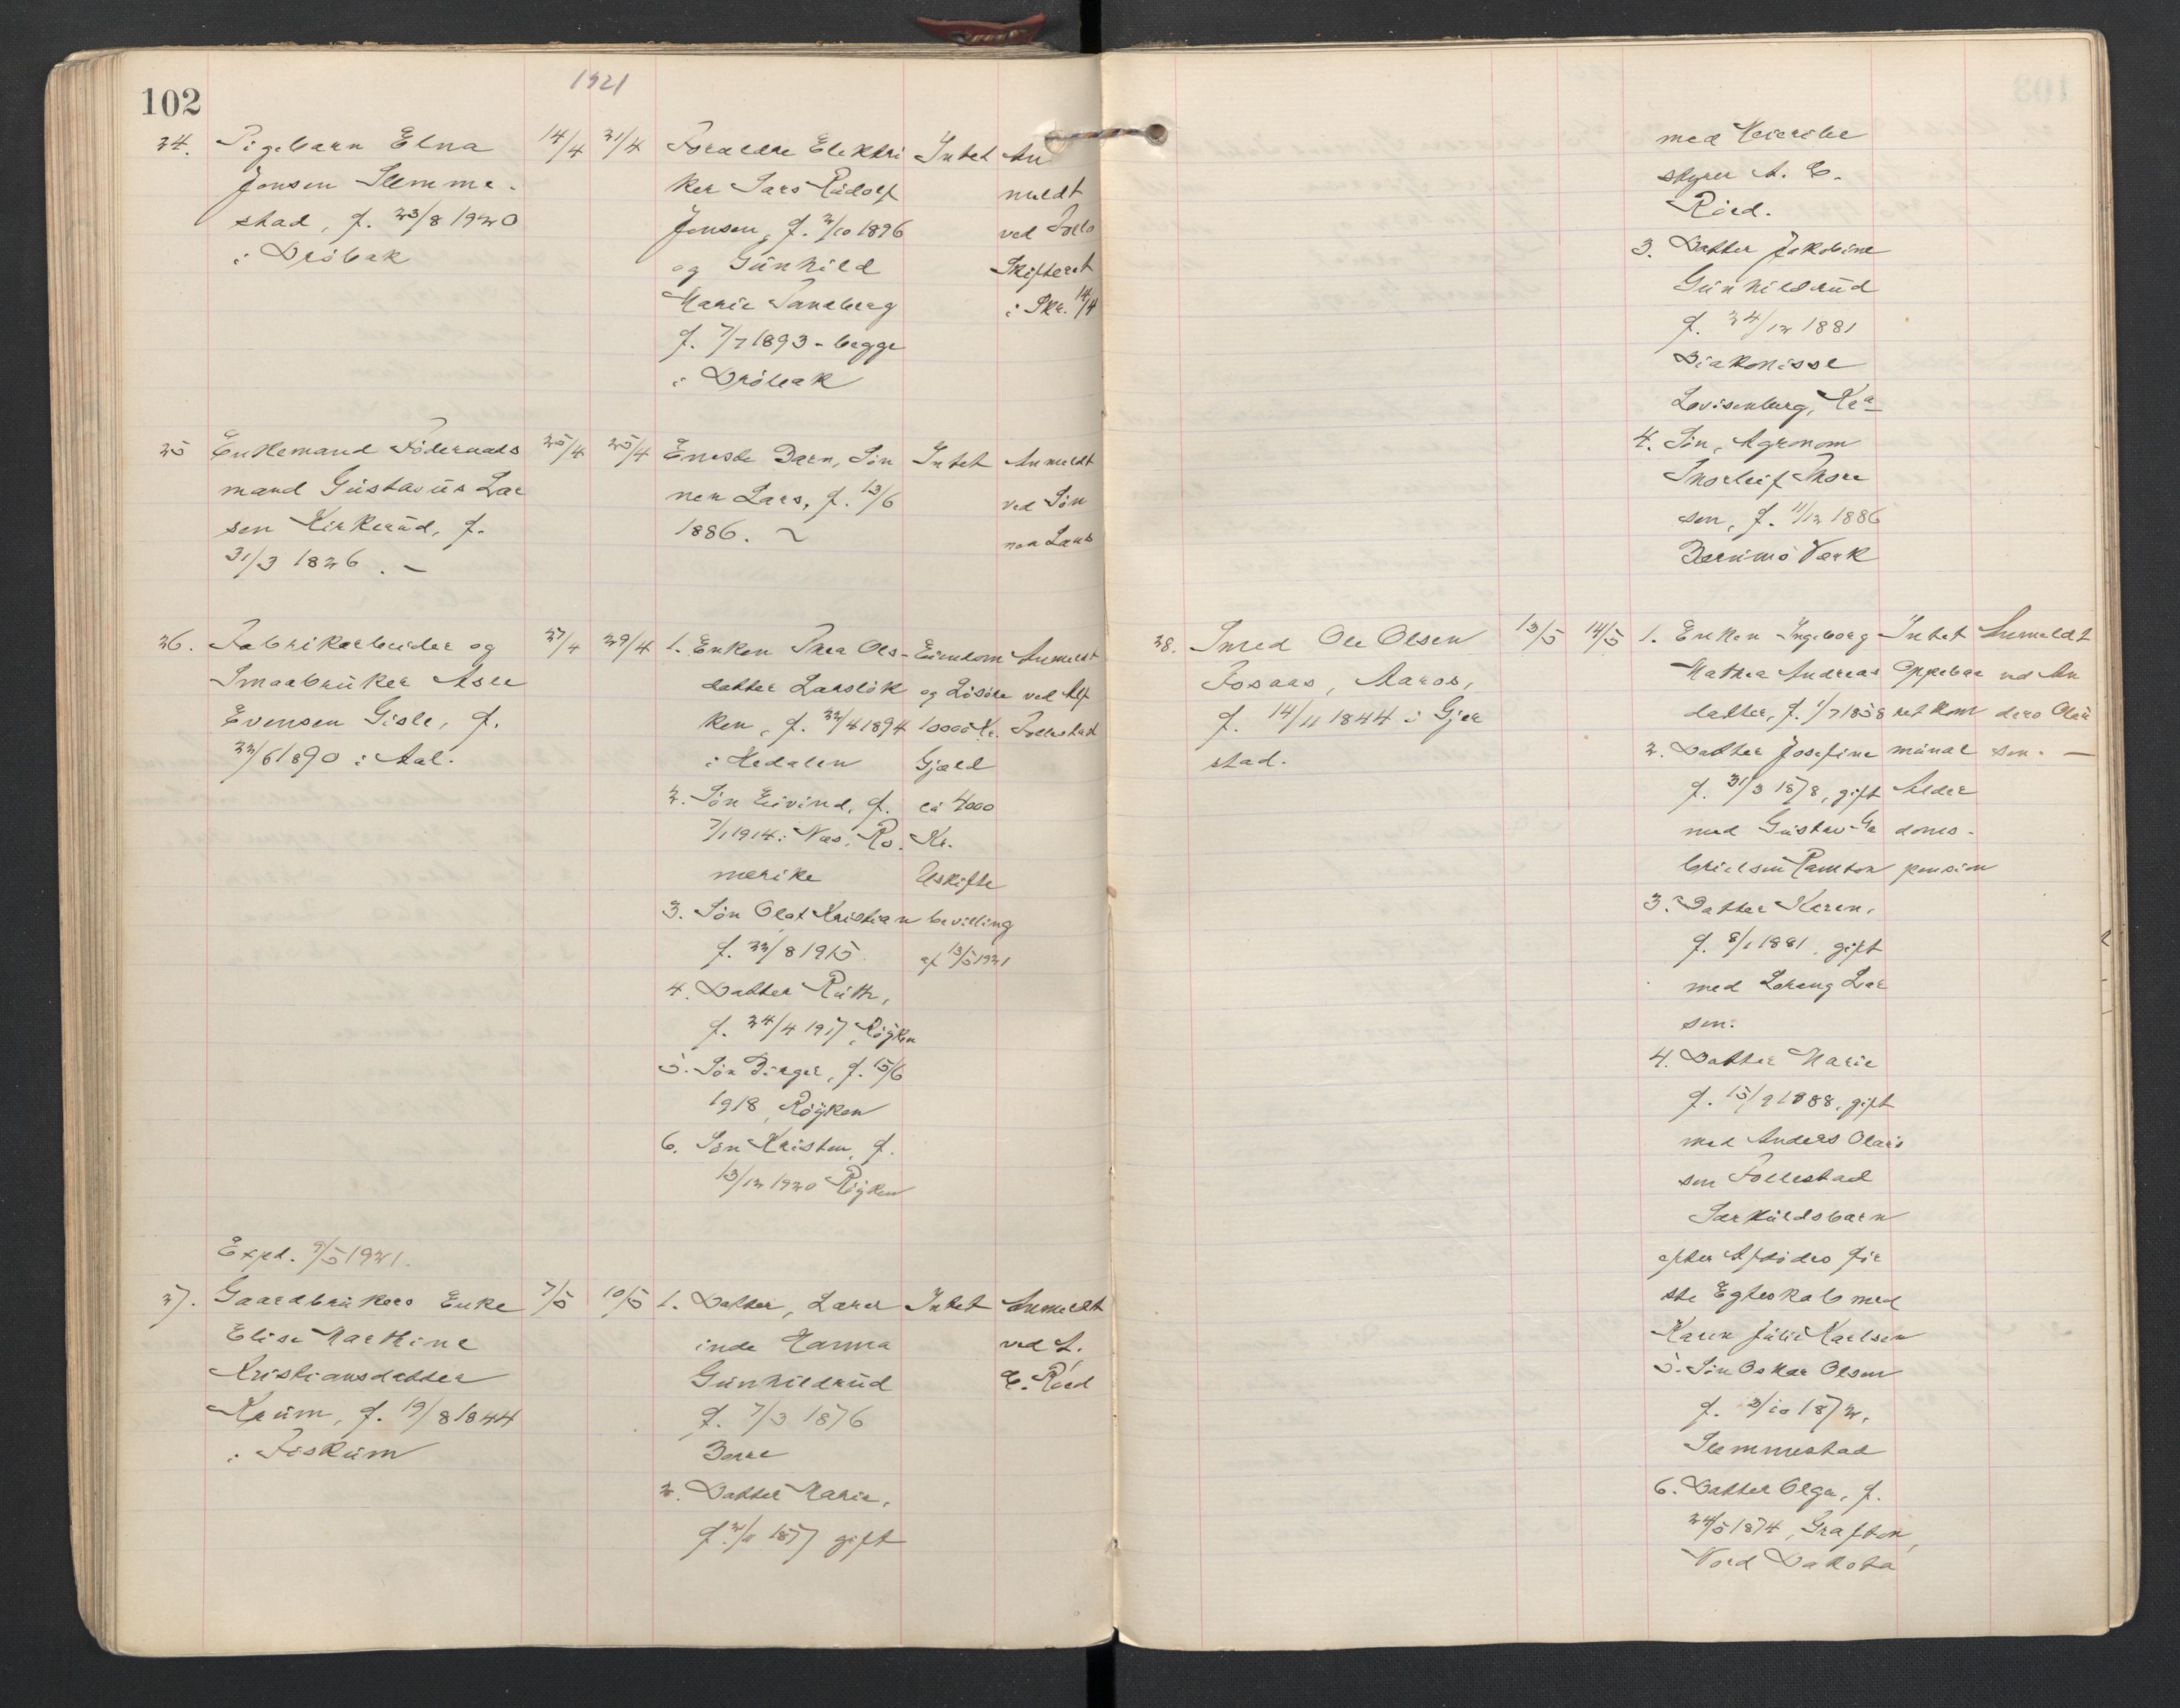 102
1921
24. Pigebarn Elna
Jensen Slemme-
stad, f. 23/8 1920
i Dröbak
14/4 21/4
Foraeldre Elektri
ker Lars Rudolf
Jensen, f. 2/10 1896
og Gunhild
Marie
f. 7/7 1893 - begge
i Dröbak
Intet
An
meldt
ved
Skifteret
i Skr. 14/4
25 Enkemand Föderaads
mand Gustavus Lar
sen Kirkerud, f.
31/3 1826. -
25/4 25/4
Eneste Barn, Søn
nen Lars, f. 13/6
1886.
Intet
Anmeldt
ved Søn
nen Lars
26. Fabrikarbeider og
Smaabruker Asle
Evensen Gisle, f.
22/6 1890 i Aal.
27/4 29/4
1. Enken Thea Ols-
datter
ken, f. 22/4 1894
i Hedalen
2. Sön Eivind, f.
7/1 1914 i Nes, Ro-
merike
3. Sön Olaf Kristian
f. 22/8 1915.
4. Datter Ruth,
f. 24/4 1917, Röyken
5. Sön Birger, f. 15/6
1918, Röyken
6. Sön Kristen, f.
13/12 1920 Röyken
Eiendom
og Lösöre
10000 Kr.
Gjæld
ca 4000
Kr.
Uskifte
bevilling
af 13/5 1921
Anmeldt
ved Alf
Follestad
Exped. 9/5 1921.
27. Gaardbrukers Enke
Elise Marthine
Kristiansdatter
Krum, f. 19/8 1844
i Fiskum
7/5 10/5
1. Datter, Lærer
inde Hanna
Gunhildrud
f. 7/3 1876
Borre
2. Datter Marie,
f. 2/11 1877 gift
Intet
Anmeldt
ved A.
E. Röed
med Meieribe
styrer A. E.
Röed.
3. Datter Jakobine
Gunhildrud
f. 24/12 1881
Diakonisse
Lovisenberg, Kr.a
4. Sön, Agronom
Thorleif Thore
sen, f. 11/12 1886
Bærums Værk
28. Smed Ole Olsen
Fosaas, Aaros,
f. 14/11 1844 i Gjer
stad.
13/5 14/5
1. Enken Ingeborg
Mathea Andreas
datter, f. 1/7 1858
2. Datter Josefine
f. 31/3 1878, gift
med Gustav Ga
brielsen Ramton
3. Datter Karen,
f. 8/1 1881, gift
med Lorang Lar
sen.
4. Datter Marie
f. 15/9 1888, gift
med Anders Olaus
sen Follestad
Særkuldsbarn
efter Afdödes för
ste Egteskab med
Karen Julie Karlsen
5. Sön Oskar Olsen
f. 3/10 1872,
Slemmestad
6. Datter Olga, f.
24/5 1874, Grafton,
Nord Dakota
Intet
Oppebar
ret kom
munal
Alder
doms-
pension
Anmeldt
ved An
ders Olau
sen. -